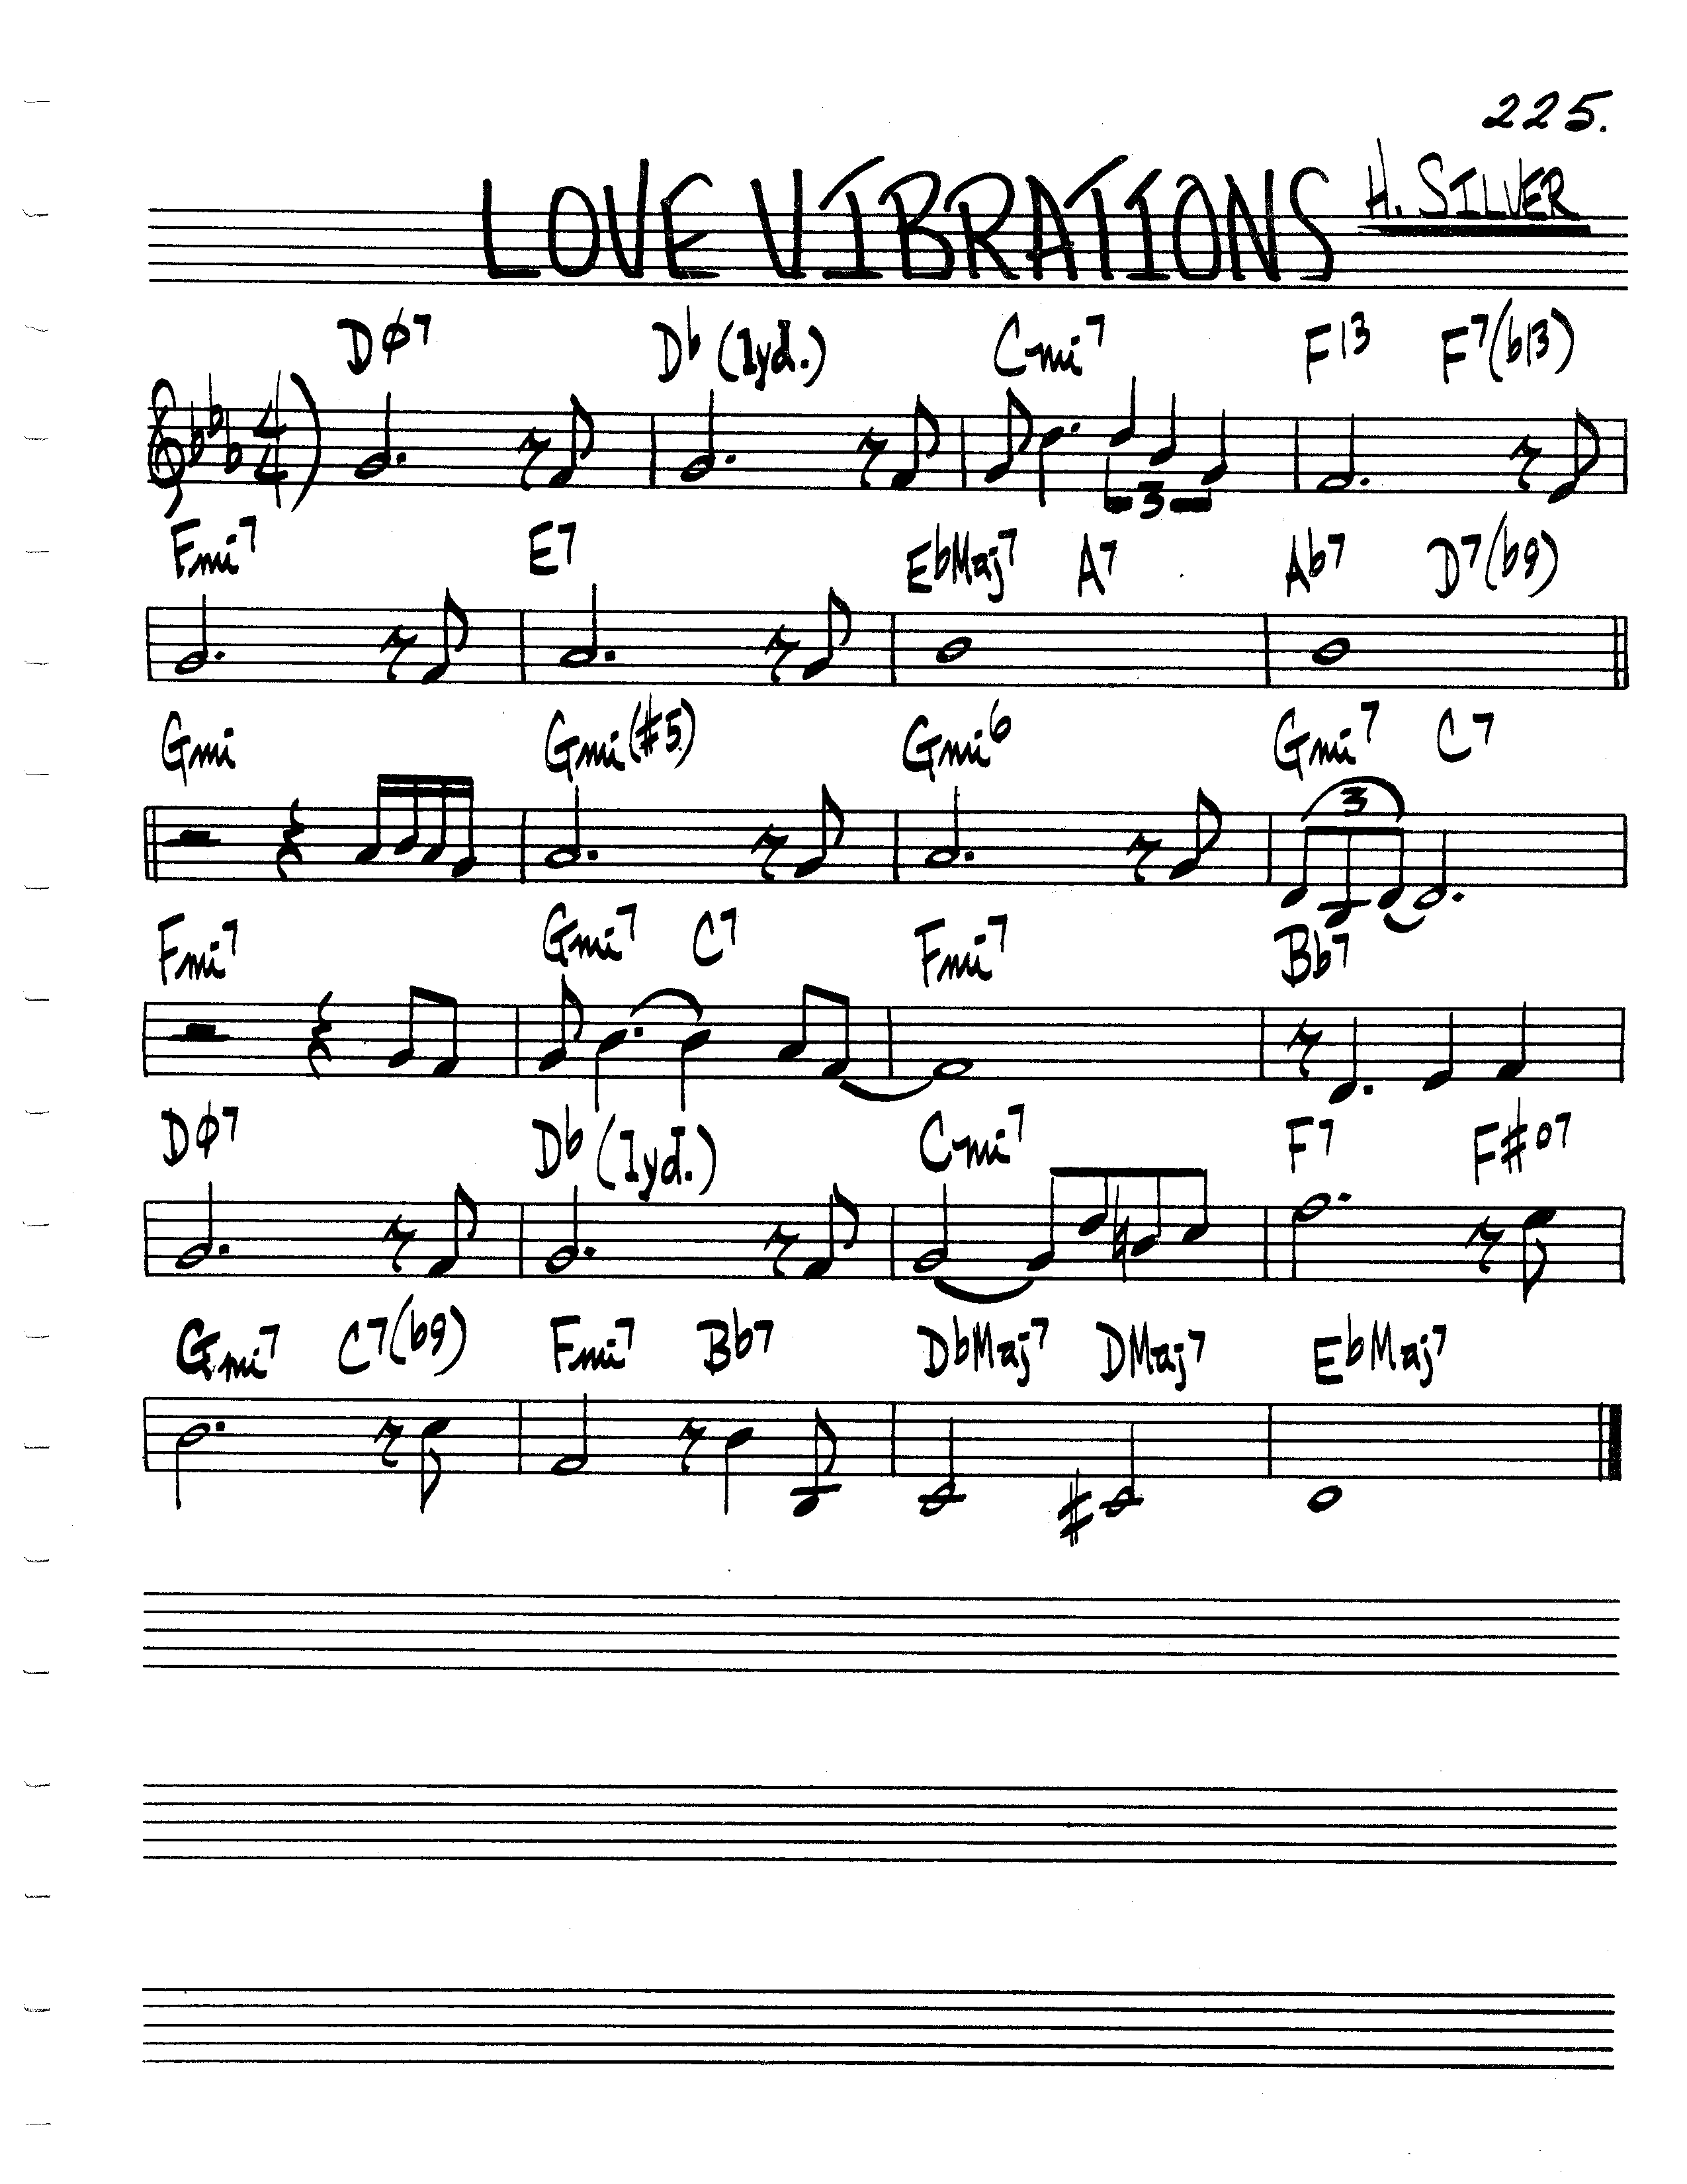 225.
LOVE VIBRATIONS H. SILVER
Dø7 Db (lyd.) Cmi7 F13 F7(b13)
4/4 3
Fmi7 E7 EbMaj7 A7 Ab7 D7(b9)
Gmi Gmi(#5) Gmi6 Gmi7 C7
3
Fmi7 Gmi7 C7 Fmi7 Bb7
Dø7 Db (lyd.) Cmi7 F7 F#o7
Gmi7 C7(b9) Fmi7 Bb7 DbMaj7 DMaj7 EbMaj7